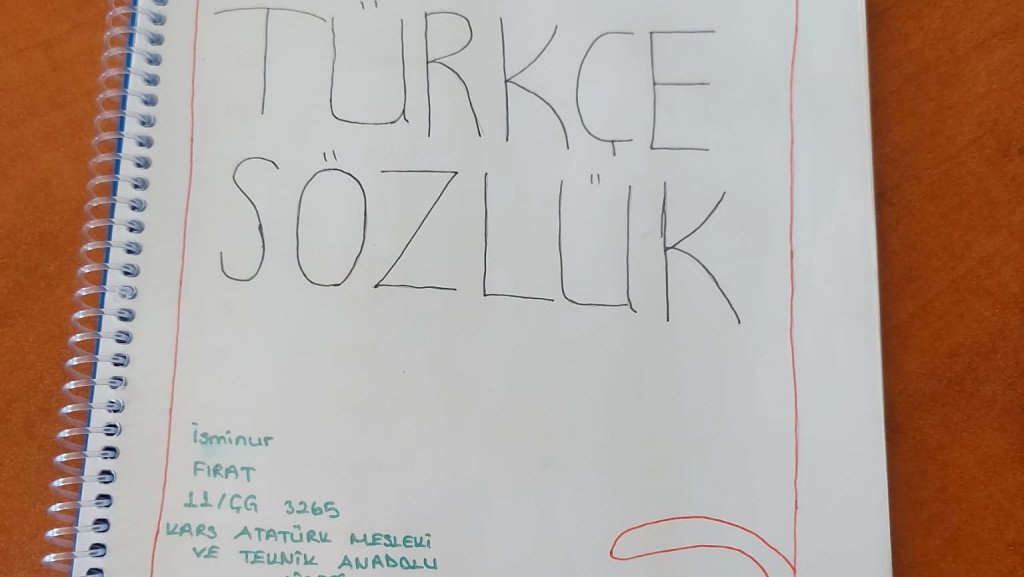 TÜRKÇE
SÖZLÜK
İsminur
FIRAT
11/ÇG 3265
KARS ATATÜRK MESLEKİ
VE TEKNİK ANADOLU